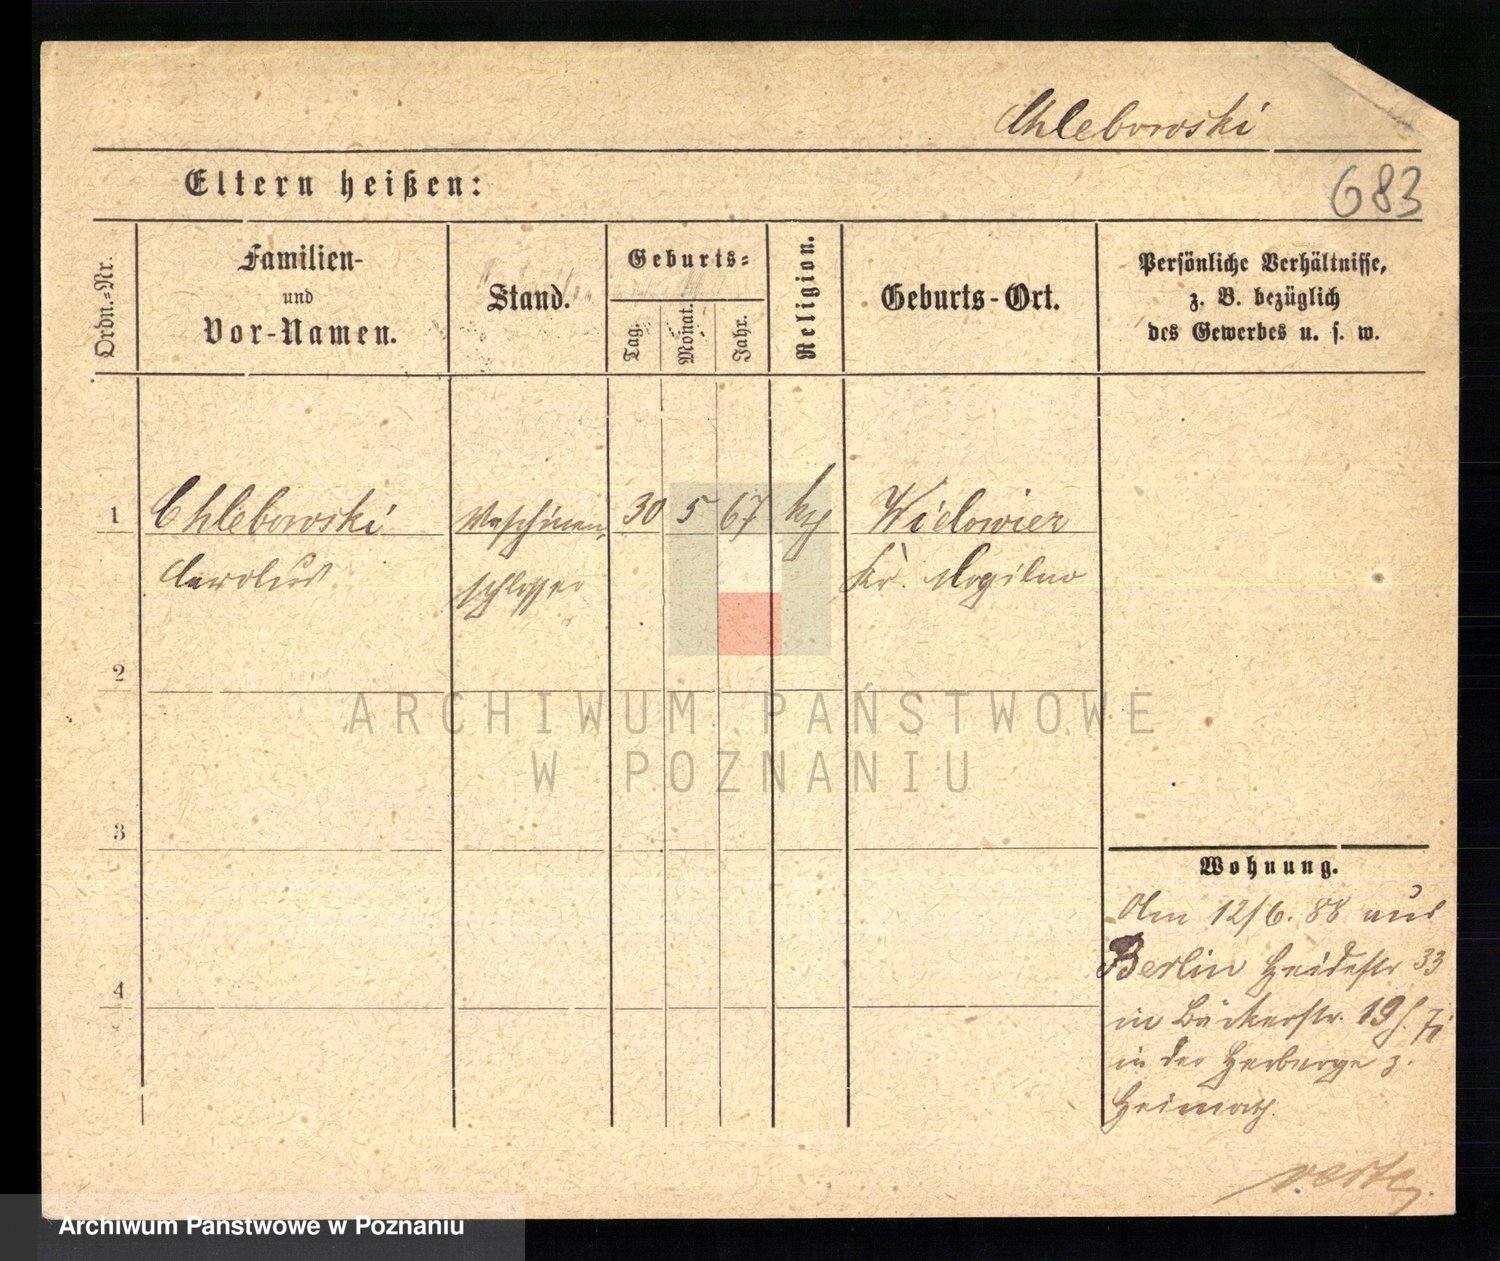 Chlebowski
Eltern heißen:
683
Ordn.=Nr.
Familien-
und
Vor-Namen.
Stand.
Geburts=
Tag.
Monat.
Jahr.
Religion.
Geburts-Ort.
Persönliche Verhältnisse,
z. B. bezüglich
des Gewerbes u. s. w.
1 Chlebowski Maschinen 30 5 67 kth Wielowiez
Carolus schlosser Kr. Mogilno
2
ARCHIWUM PAŃSTWOWE
W POZNANIU
3
Wohnung.
Am 12/6. 88 aus
Berlin Heidestr 33
in Bäckerstr. 19
in der Herberge z.
Heimath.
4
verte
Archiwum Państwowe w Poznaniu